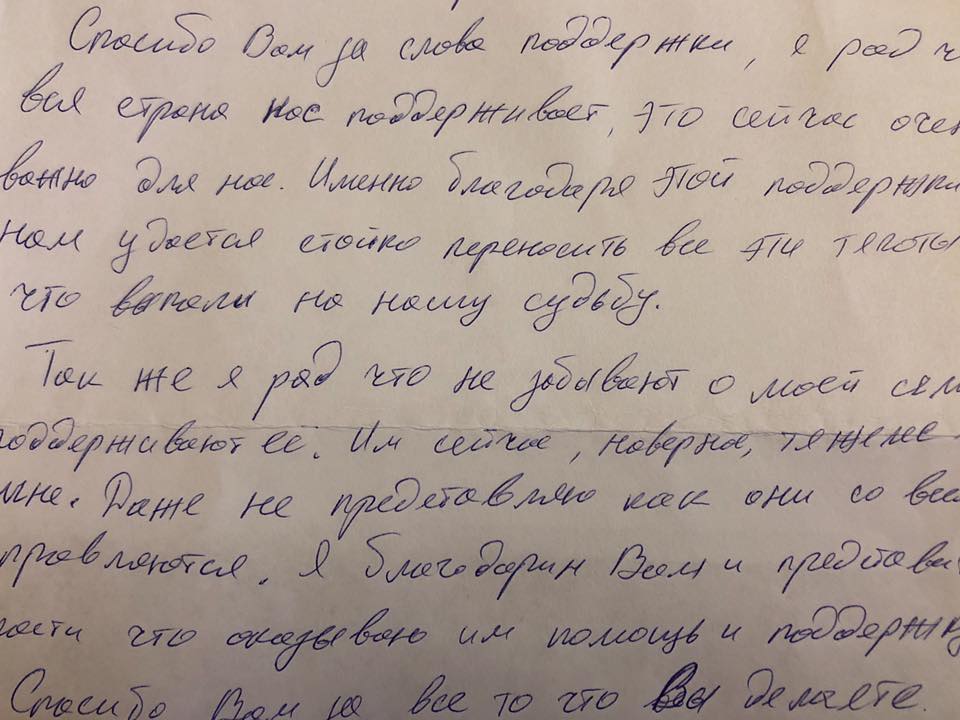 Спасибо Вам за слова поддержки, я рад ч
вся страна нас поддерживает, это сейчас очен
важно для нас. Именно благодаря этой поддержки
нам удается стойко переносить все эти тяготы
что выпали на нашу судьбу.
Так же я рад что не забывают о моей сем
поддерживают ее. Им сейчас, наверна, тяжеже
мне. Даже не представляю как они со всем
справляются. Я благодарин Вам и представи
ласти что оказываю им помощь и поддержку
Спасибо Вам за все то что Вы делаете.